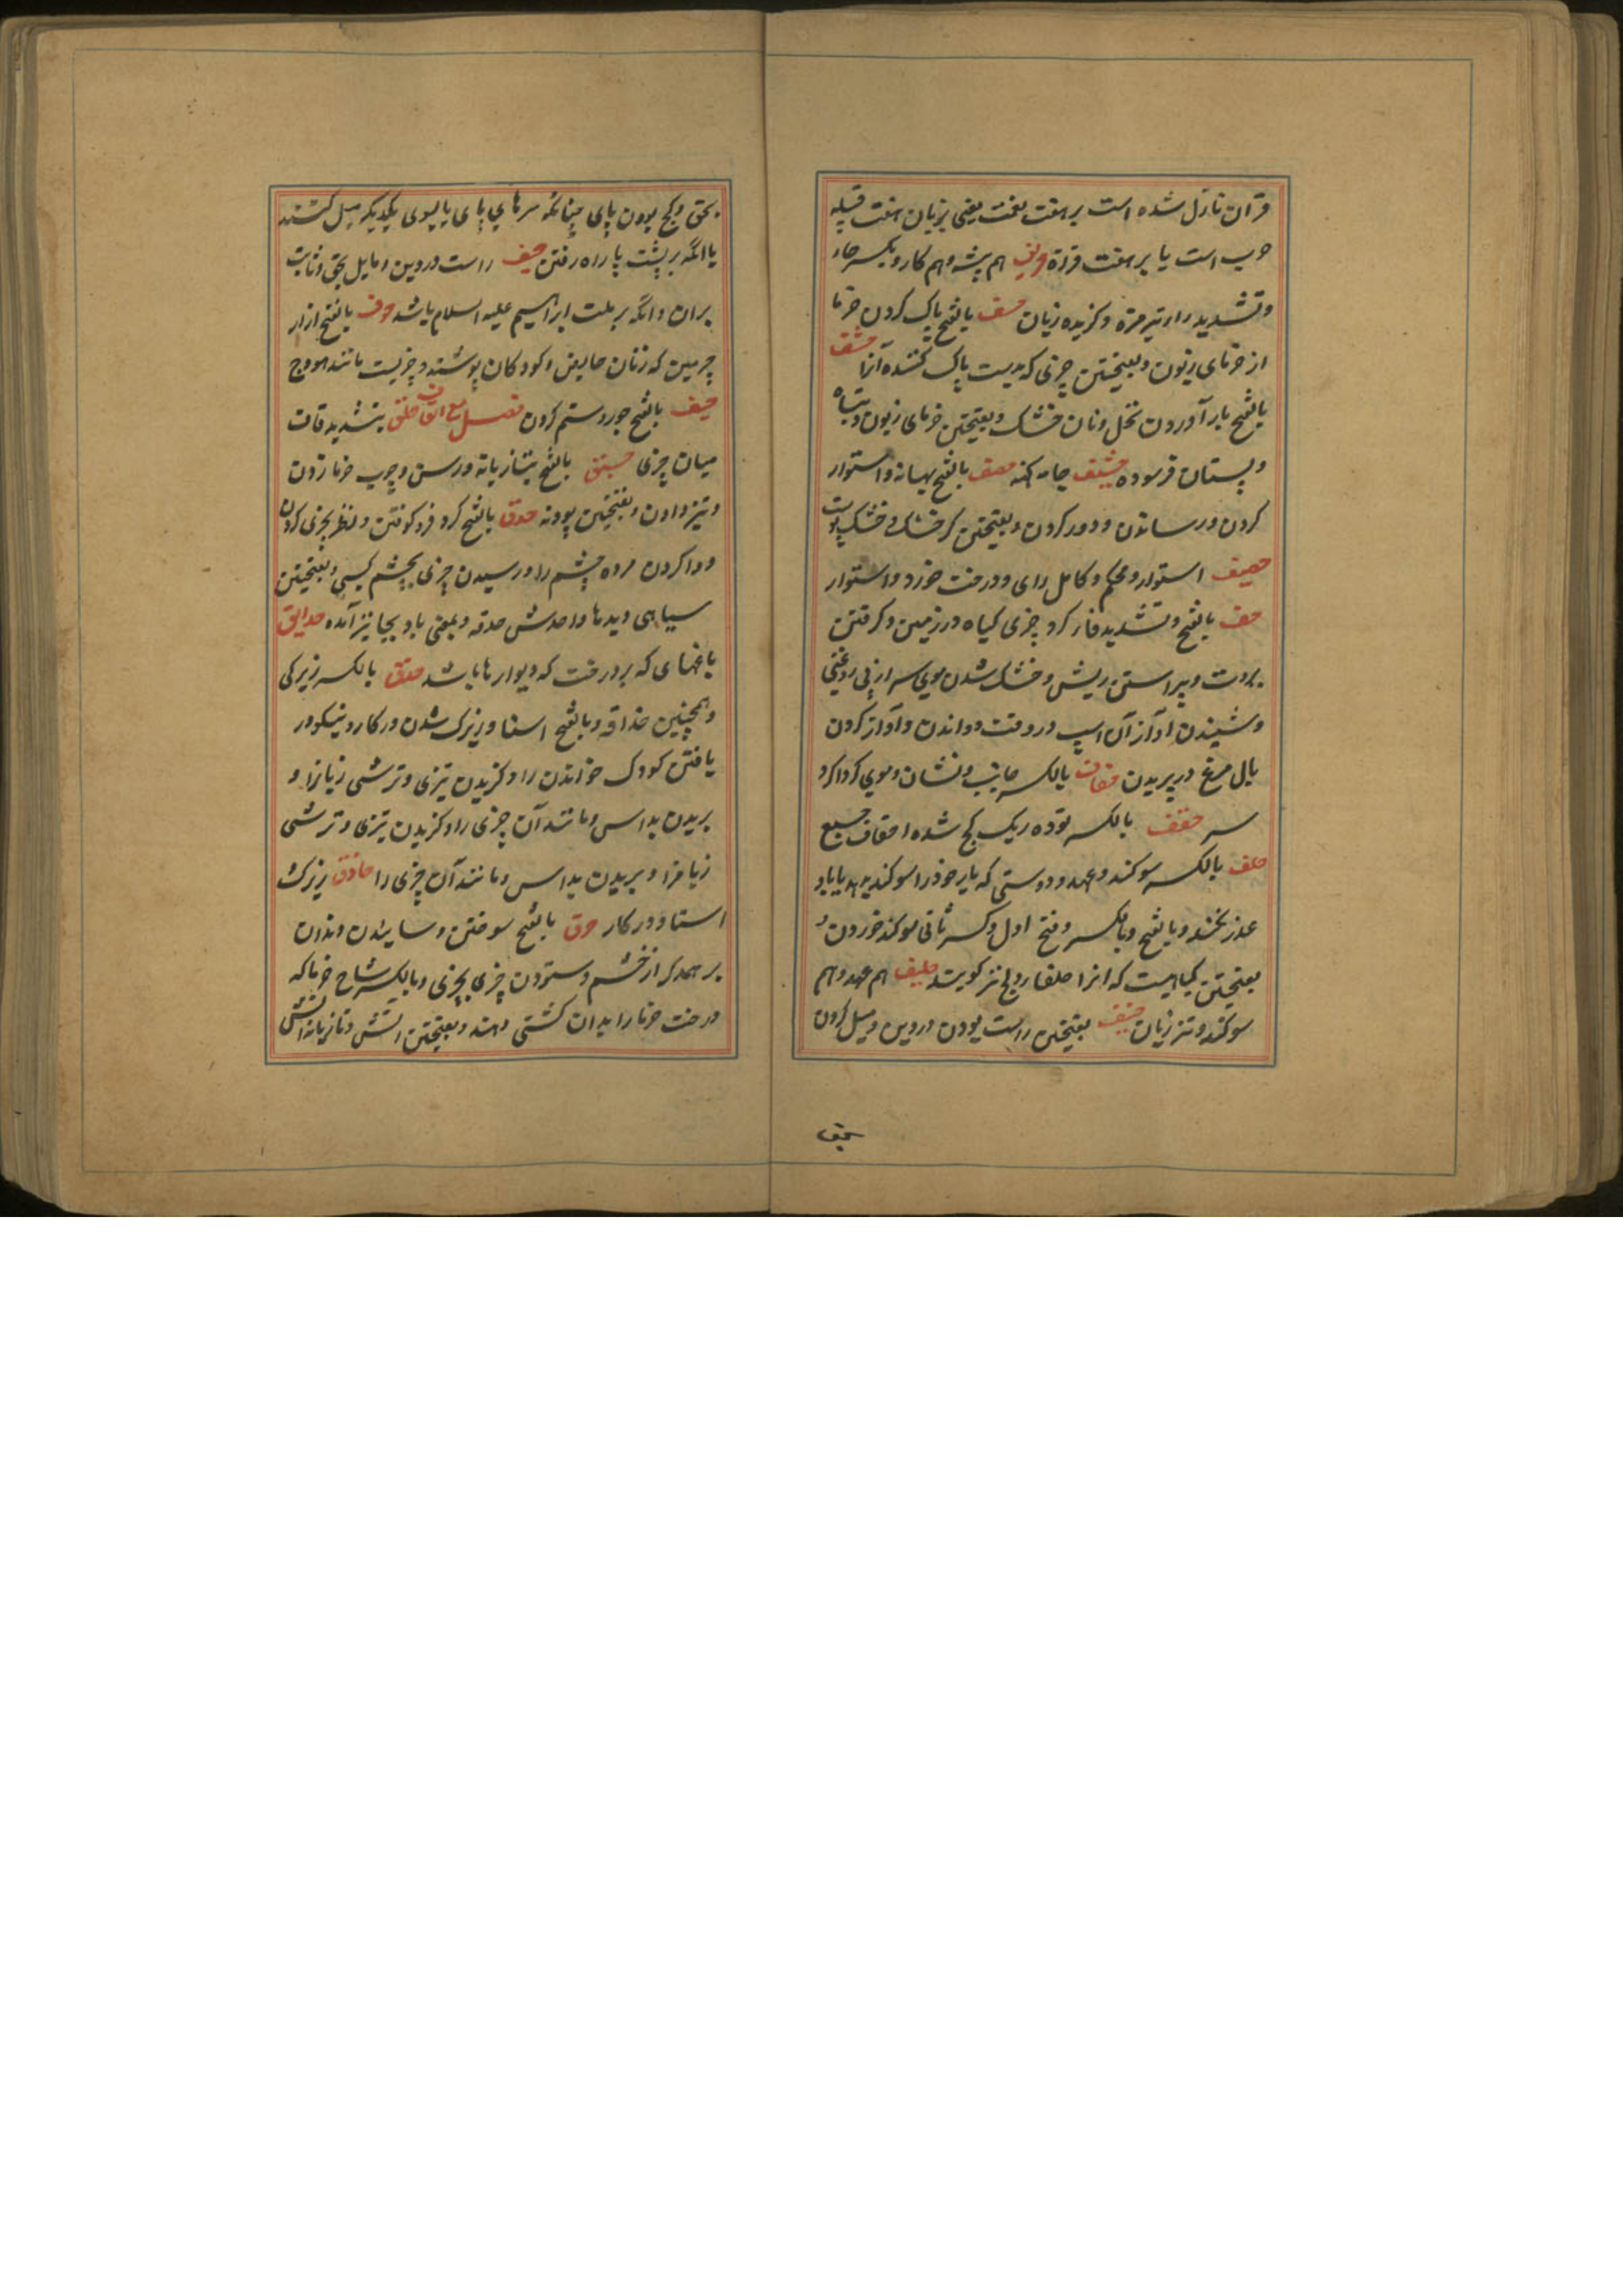 قران نازل شده است بر هفت لغت یعنی بزبان هفت قبیله
عرب است یا بر هفت قراة حریف هم پیشه و هم کار و بکسر حاء
و تشدید راء تیز مزه و گزنده زبان حسف بالفتح پاک کردن خرما
از خرمای زبون و بفتحتین چیزی که بدست پاک کننده آنرا حشف
بالفتح بار آوردن نخل و نان خشک و بفتحتین خرمای زبون و تباه
و پستان فرسوده حشیف جامه کهنه حصف بالفتح و استوار
کردن و رساندن و دور کردن و بفتحتین کر خشک و خشک پوست
حصیف استوار و محکم و کامل رای و درخت خورد و استوار
حف بالفتح و تشدید فا کرد چیزی گیاه در زمین و گرفتن
بروت و پیراستن ریش و خشک شدن موی سر از بی روغنی
و شنیدن آواز آن اسپ در وقت دواندن و آواز کردن
بال مرغ در پریدن حفاف بالکسر جانب و نشان و موی کرداکرد
سر حقف بالکسر توده ریک کج شده احقاف جمع
حلف بالکسر سوکند و عهد و دوستی که یار خود را سوکند بدهد یا باو
عذر نکند و بالفتح و بالکسر و فتح اول و کسر ثانی سوکند خوردن و
بفتحتین گیاهیست که انرا حلفا نیز کویند حلیف هم عهد و هم
سوکند و تیز زبان حنیف بفتحتین راست بودن در دین و میل کردن
بحق
بحق و کج بودن پای چنانکه سرهای پای یا بسوی یکدیکر میل کنند
یا انکه بر پشت پا راه رفتن حنیف راست در دین و مایل بحق و ثابت
بران و انکه بر ملت ابراهیم علیه السلام باشد حوف بالفتح ازار
چرمین که زنان حایض و کودکان پوشند و چیزیست مانند هودج
حیف بالفتح جور و ستم کردن فصل مع القاف حلق بتشدید قاف
میان چیزی حبق بالفتح بتازیانه و رسن و چوب خرما زدن
و تیز دادن و بفتحتین پودنه حدق بالفتح کرد فرو کوفتن و نظر بچیزی کردن
و وا کردن مرده چشم را و رسیدن چیزی بچشم کسی و بفتحتین
سیاهی دیدها واحدش حدقه و بمعنی بادنجان نیز آمده حدایق
باغهای که پر درخت که دیوارها باشد حذق بالکسر زیرکی
و همچنین حذاقه و بالفتح استا و زیرک شدن در کار و نیکو در
یافتن کودک خواندن را و گزیدن تیزی و ترشی زبانرا و
بریدن بداس و مانند آن چیزی را و گزیدن تیزی و ترشی
زبانرا و بریدن بداس و مانند آن چیزی را حاذق زیرک
استا و در کار حرق بالفتح سوختن و سایدن دندان
بر همدکر از خشم و ستردن چیزی بچیزی و بالکسر شاخ خرما که
درخت خرما را بدان کشتی دهند و بفتحتین اتش و زبانه اتش